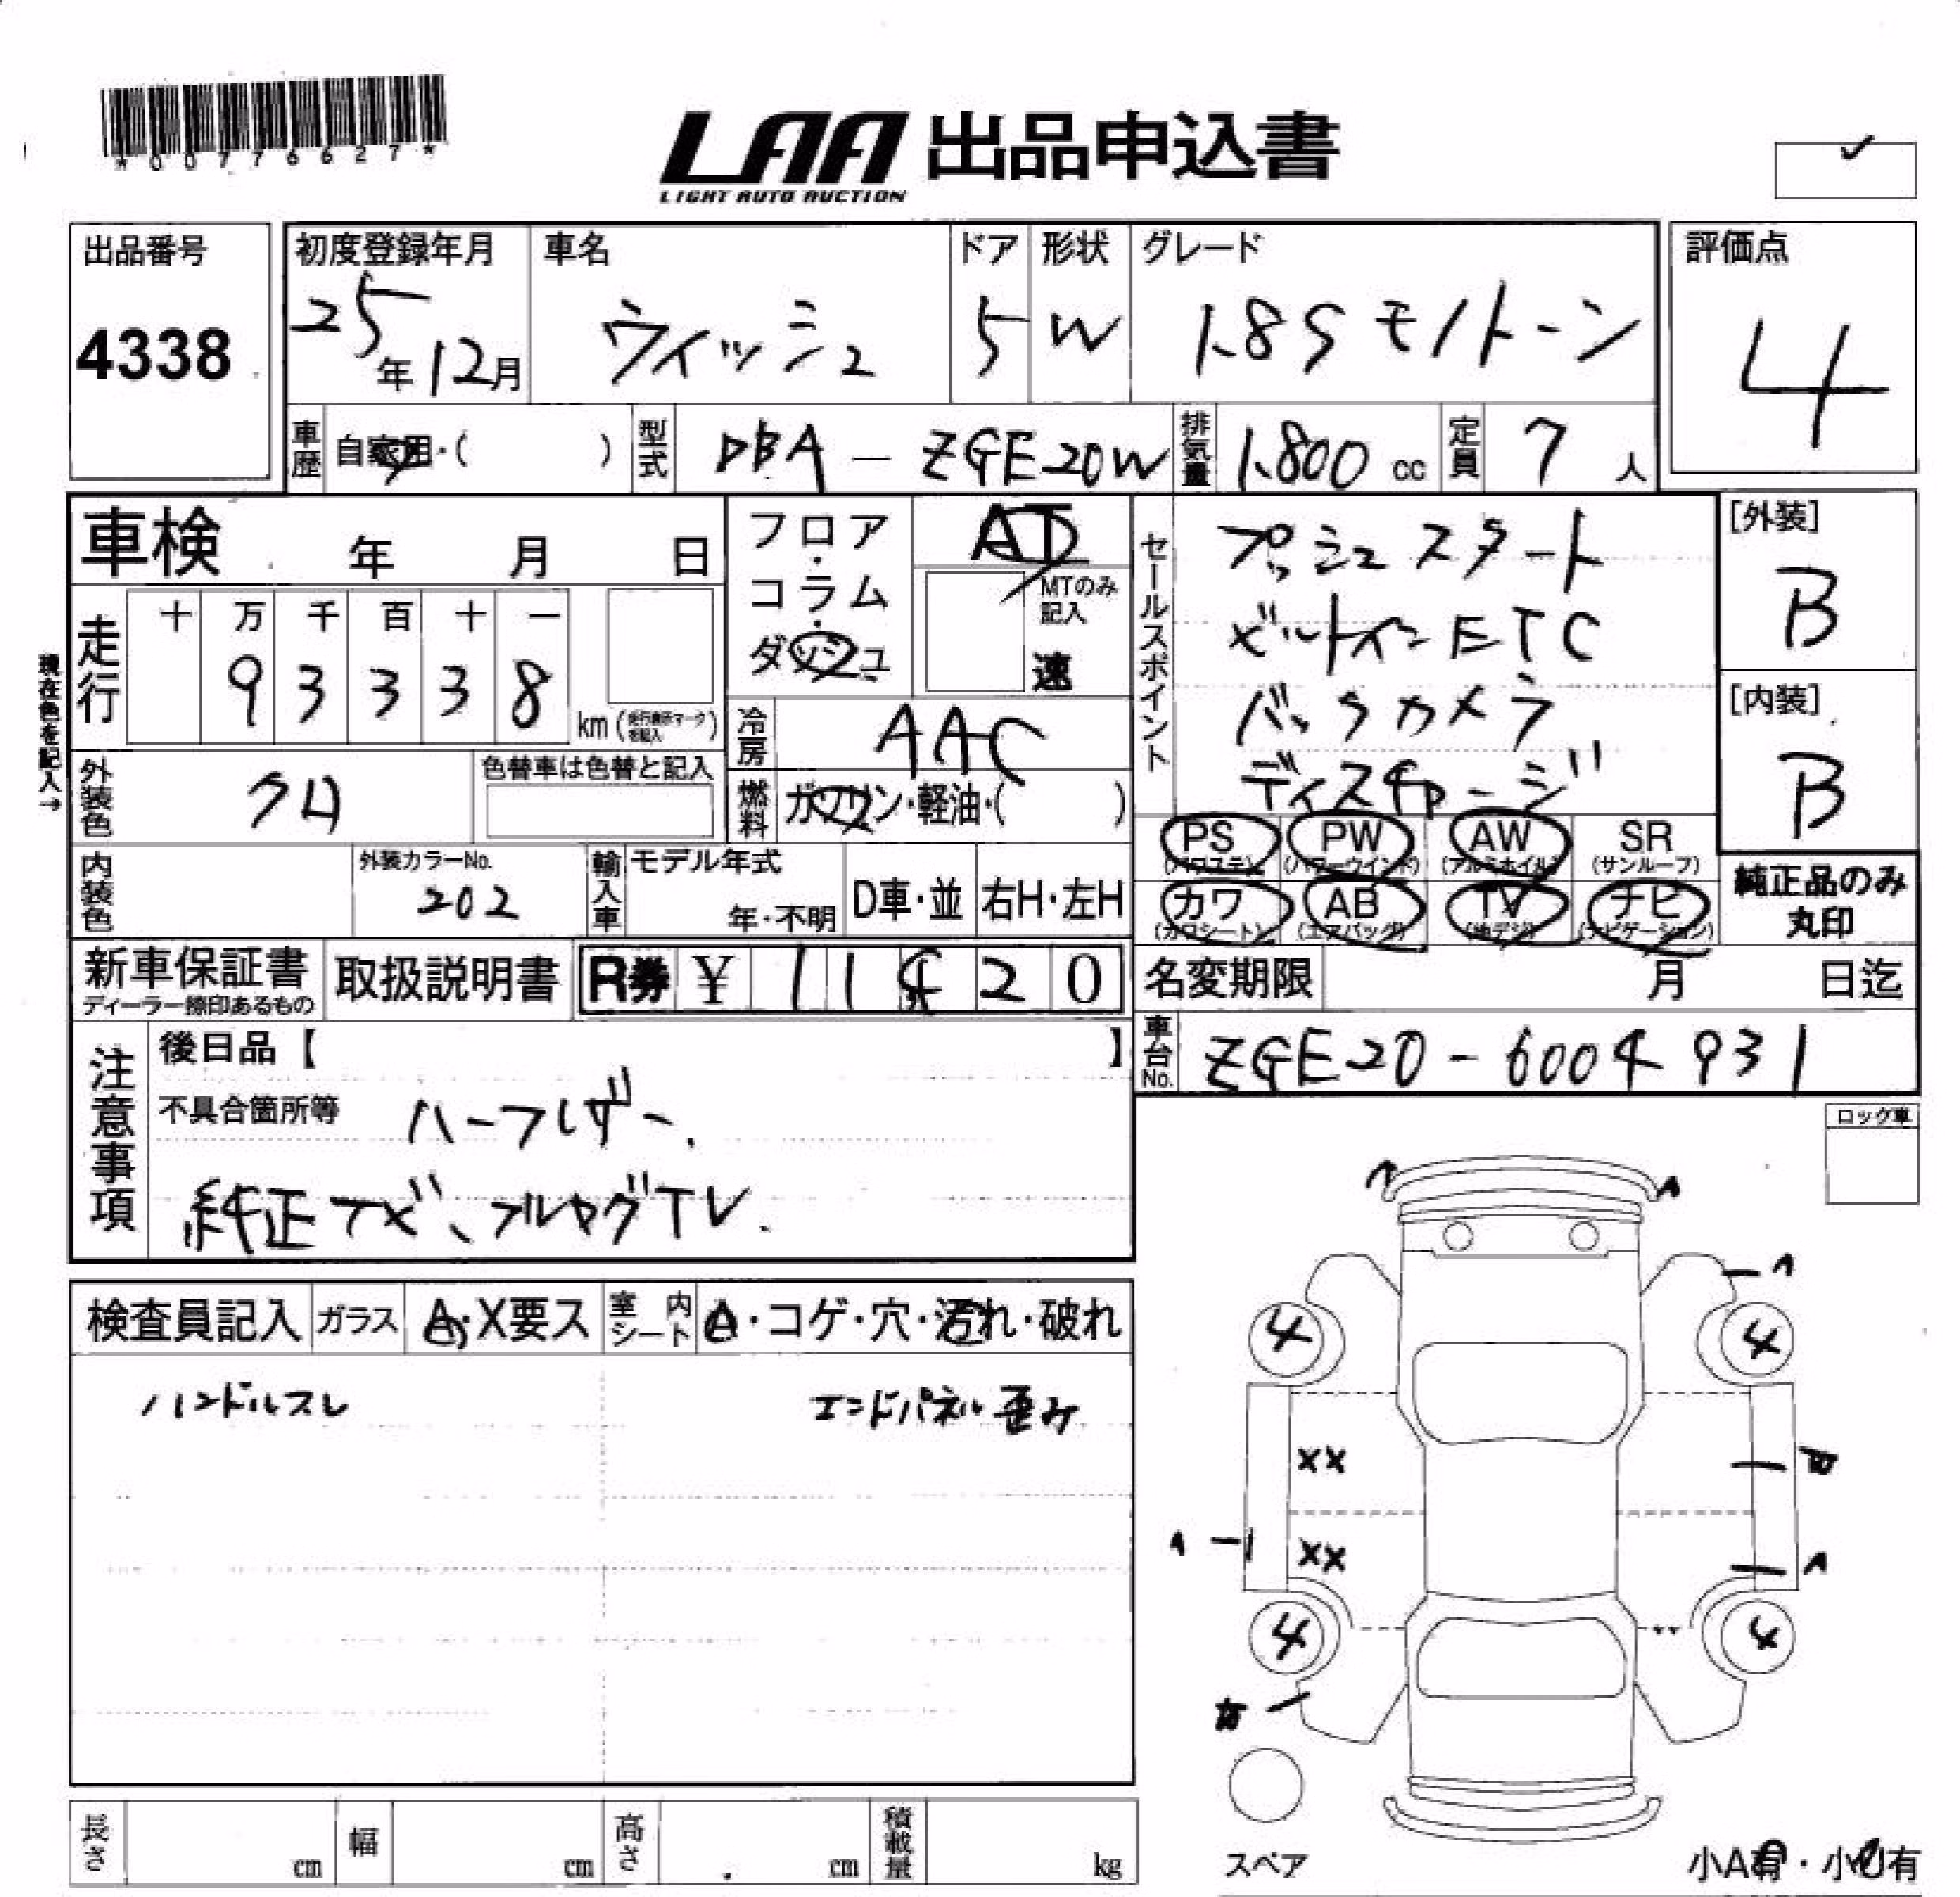 *00776627*
LAA 出品申込書
LIGHT AUTO AUCTION
出品番号
4338
初度登録年月
25年12月
車名
ウィッシュ
ドア
5
形状
W
グレード
1.8S モノトーン
評価点
4
車歴
自家用・( )
型式
DBA-ZGE20W
排気量
1.800 cc
定員
7人
車検 年 月 日
フロア・コラム・ダッシュ
AT
MTのみ記入
速
セールスポイント
プッシュスタート
ビルトインETC
バックカメラ
ディスチャージ
[外装]
B
[内装]
B
現在色を記入→
走行
十 万 千 百 十 一
9 3 3 3 8
km (走行表示マークを記入)
冷房
AAC
燃料
ガソリン・軽油・( )
外装色
クロ
色替車は色替と記入
内装色
外装カラーNo.
202
輸入車
モデル年式
年・不明
D車・並
右H・左H
PS (パワステ)
PW (パワーウインド)
AW (アルミホイル)
SR (サンルーフ)
カワ (カワシート)
AB (エアバッグ)
TV (地デジ)
ナビ (ナビゲーション)
純正品のみ
丸印
新車保証書
ディーラー捺印あるもの
取扱説明書
R券 ¥ 11420
名変期限 月 日迄
車台No.
ZGE20-6004931
注意事項
後日品【 】
不具合箇所等
ハーフレザー、
純正ナビ、フルセグTV.
ロック車
検査員記入
ガラス
A・X要ス
室内シート
A・コゲ・穴・汚れ・破れ
ハンドルスレ
エンドパネル歪み
A
A
A
4
4
XX
A
XX
A
4
4
スペア
小A有・小U有
長さ cm
幅 cm
高さ cm
積載量 kg